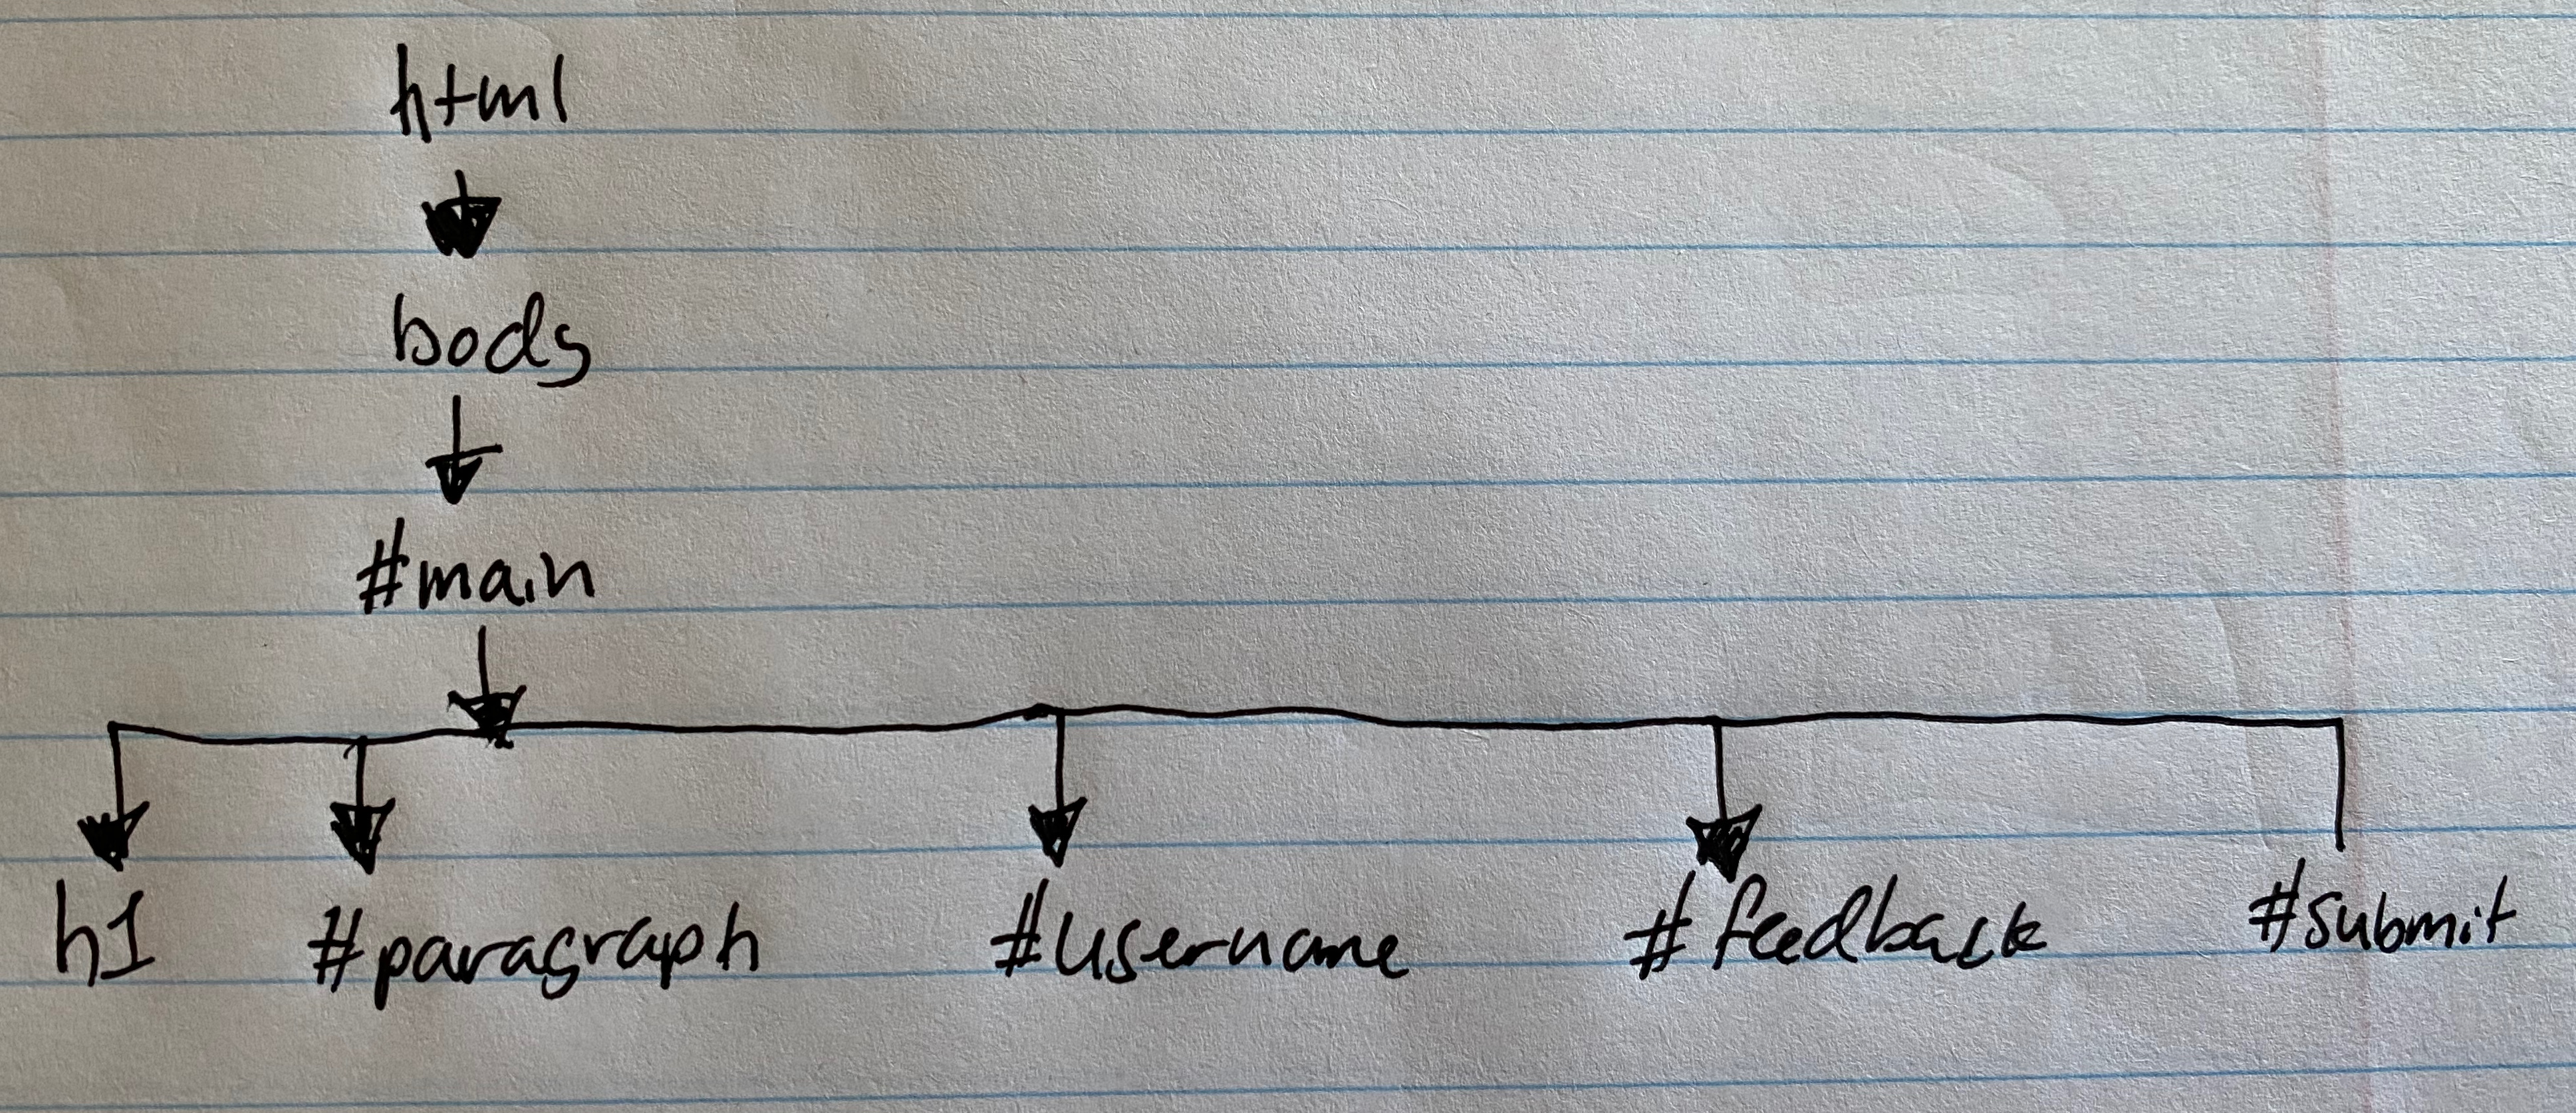 html
body
#main
h1 #paragraph #username #feedback #submit